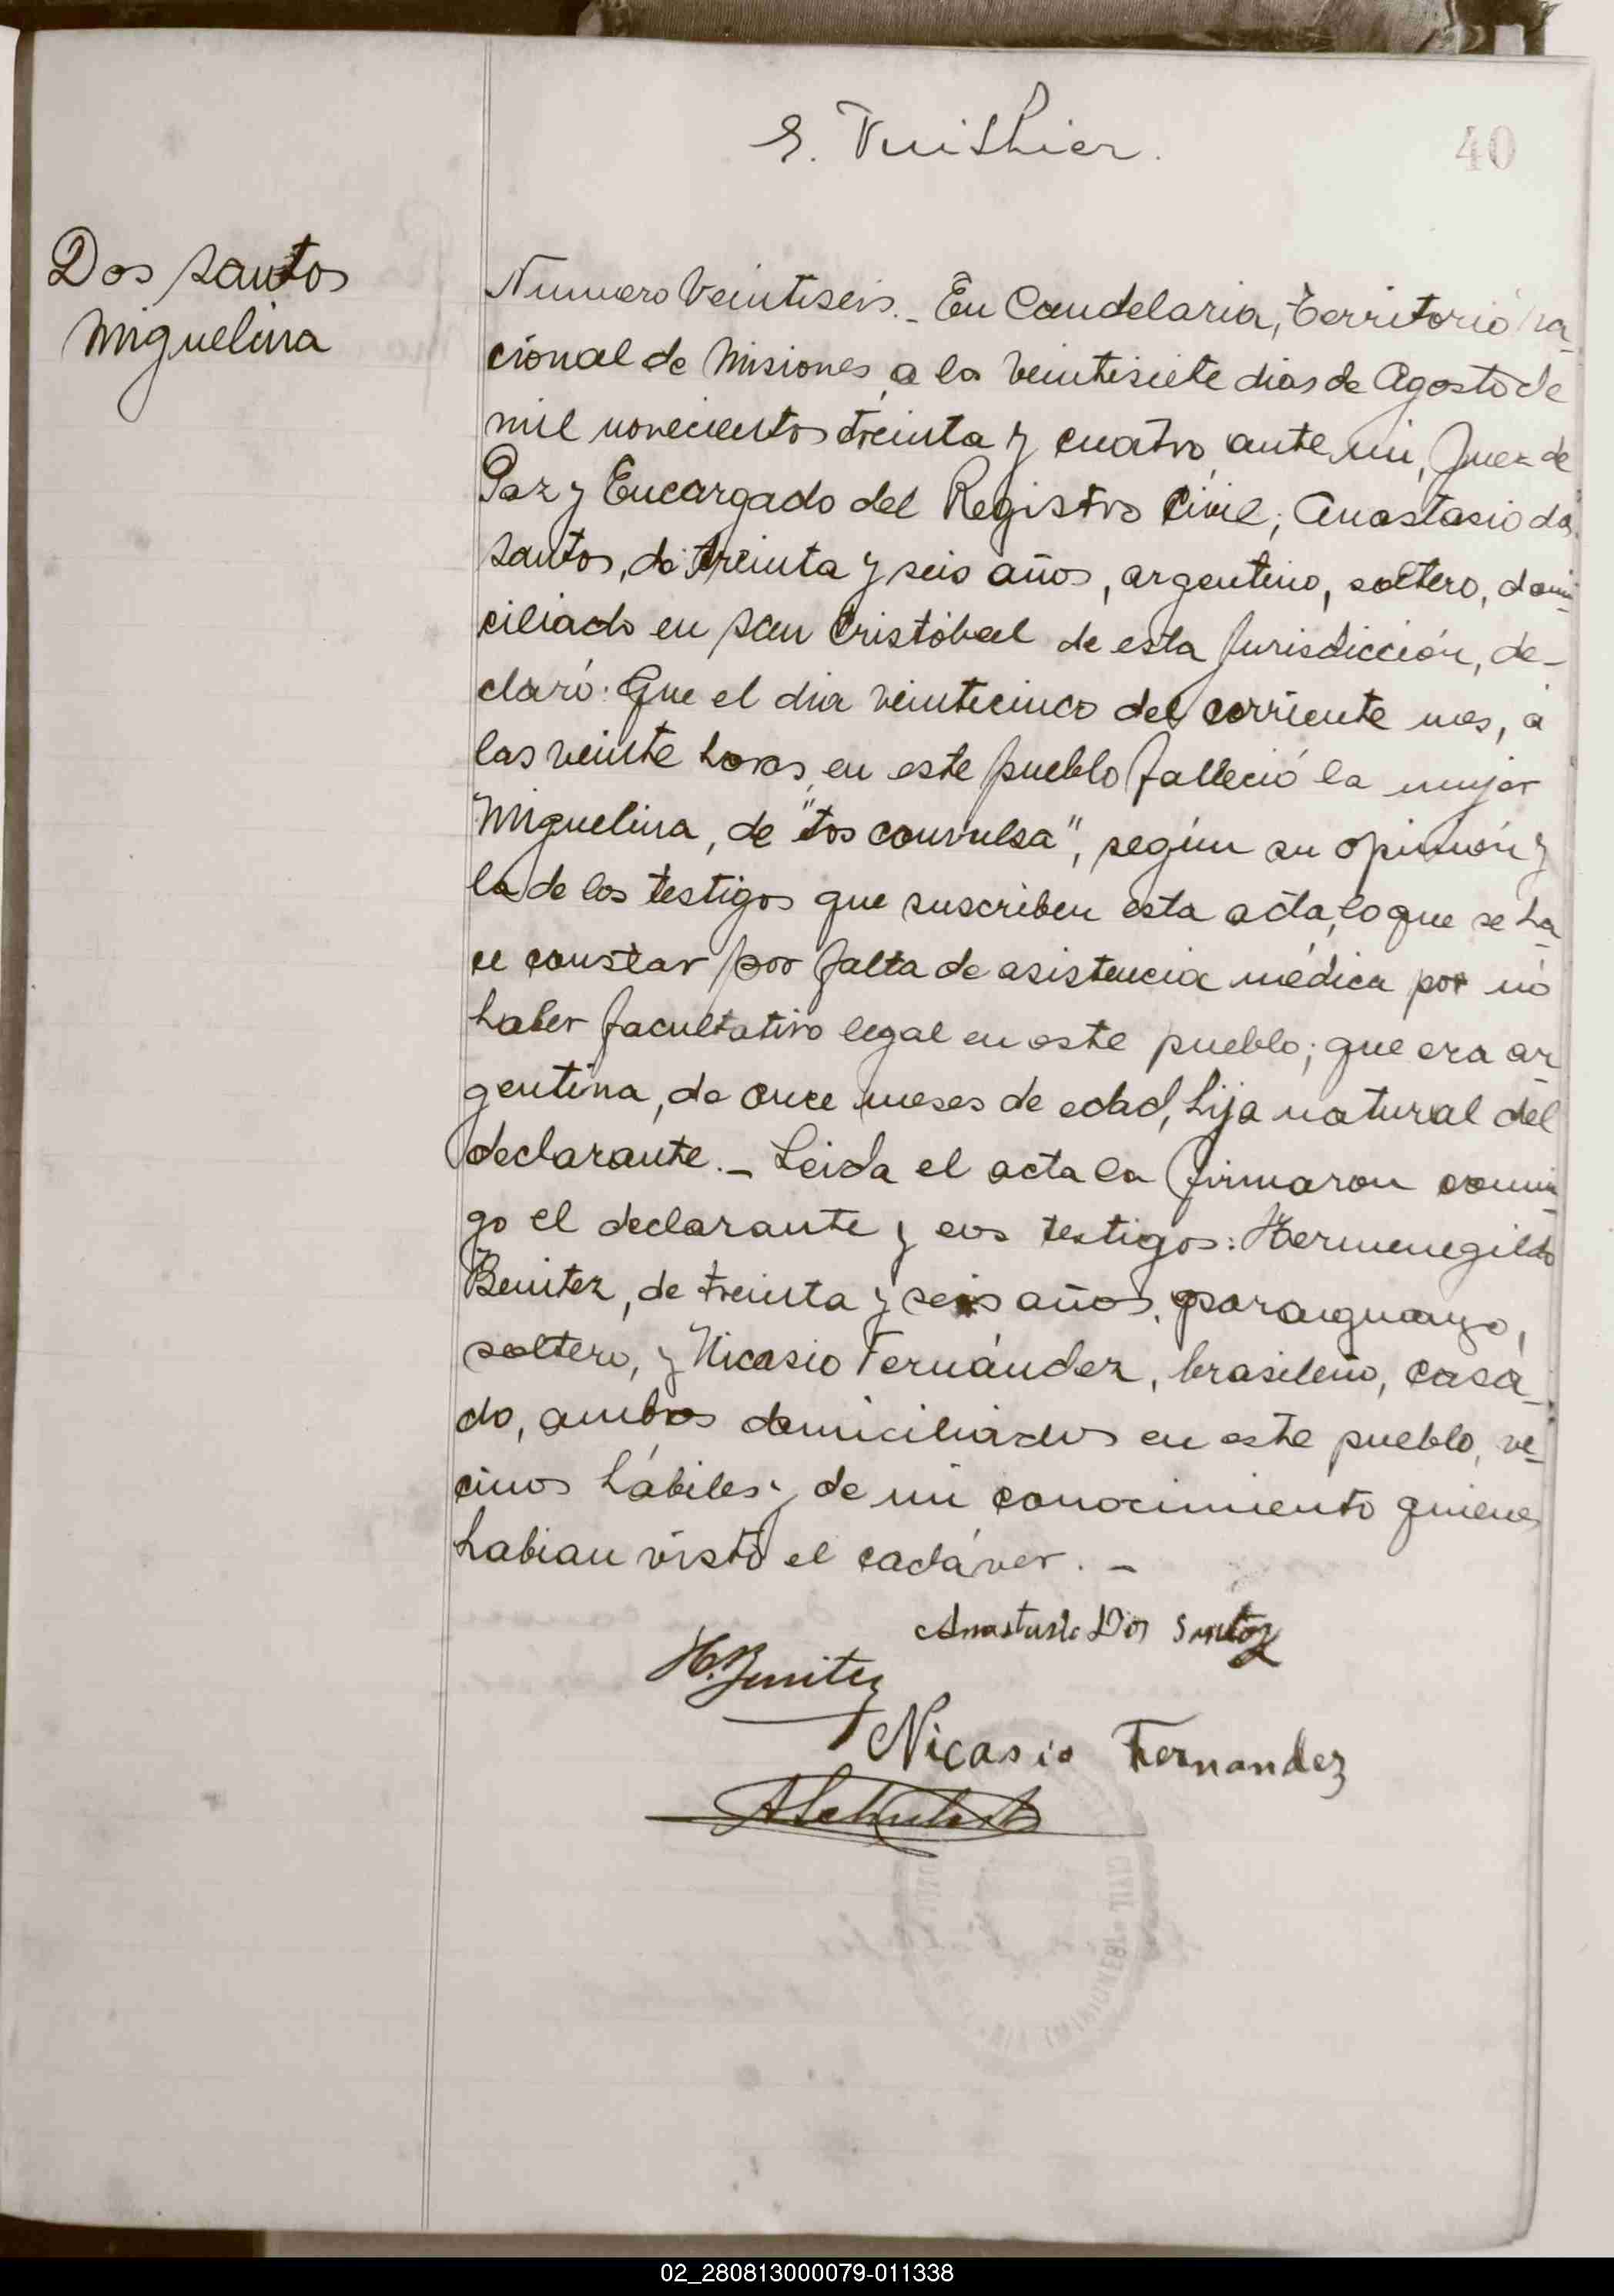 E. Vuithier.
40
Dos santos
Miguelina
Numero Veintiseis._ En Candelaria, Territorio Na-
cional de Misiones, a la veintisiete dias de Agosto de
mil novecientos treinta y cuatro, ante mi, Juez de
Paz y Encargado del Registro Civil, Anastasio dos
santos, de treinta y seis años, argentino, soltero, domi-
ciliado en San Cristóbal de esta Jurisdicción, de-
claró: Que el dia veintecinco del corriente mes, a
las veinte horas, en este pueblo falleció la mujer
Miguelina, de "tos convulsa", según su opinión y
la de los testigos que suscriben esta acta, lo que se ha-
ce constar por falta de asistencia médica por nó
haber facultativo legal en este pueblo; que era ar-
gentina, de once meses de edad, hija natural del
declarante._ Leida el acta la firmaron conmi-
go el declarante y los testigos: Hermenegildo
Benitez, de treinta y seis años, paraiguayo,
soltero, y Nicasio Fernández, brasileño, casa-
do, ambos domiciliados en este pueblo, ve-
cinos hábiles y de mi conocimiento quienes
habian visto el cadáver._
Anastasio Dos Santos
H. Benitez
Nicasio Fernandez
02_280813000079-011338